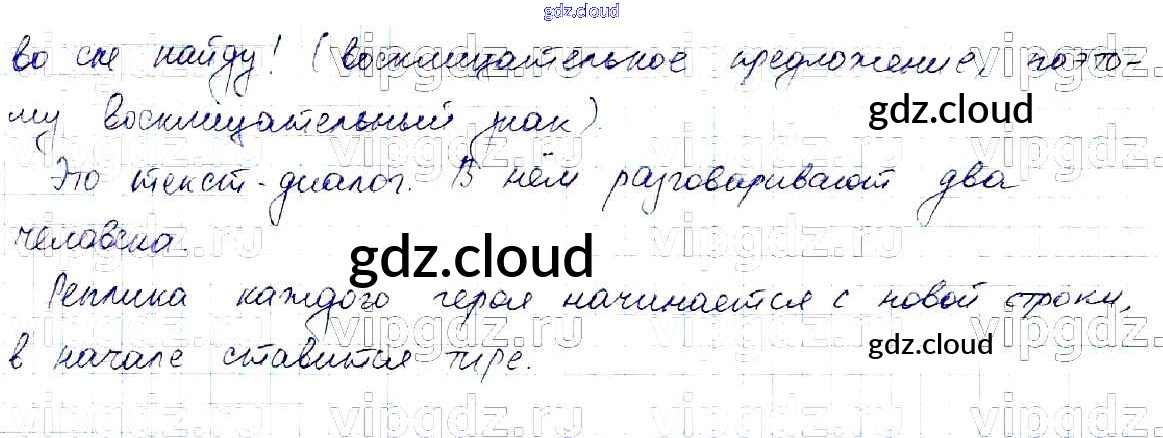 gdz.cloud
во сне найду! (восклицательное предложение, поэто-
му восклицательный знак).
gdz.cloud
Это текст-диалог. В нём разговаривают два
человека.
gdz.cloud
Реплика каждого героя начинается с новой строки,
в начале ставится тире.
gdz.cloud
vipgdz.ru vipgdz.ru vipgdz.ru